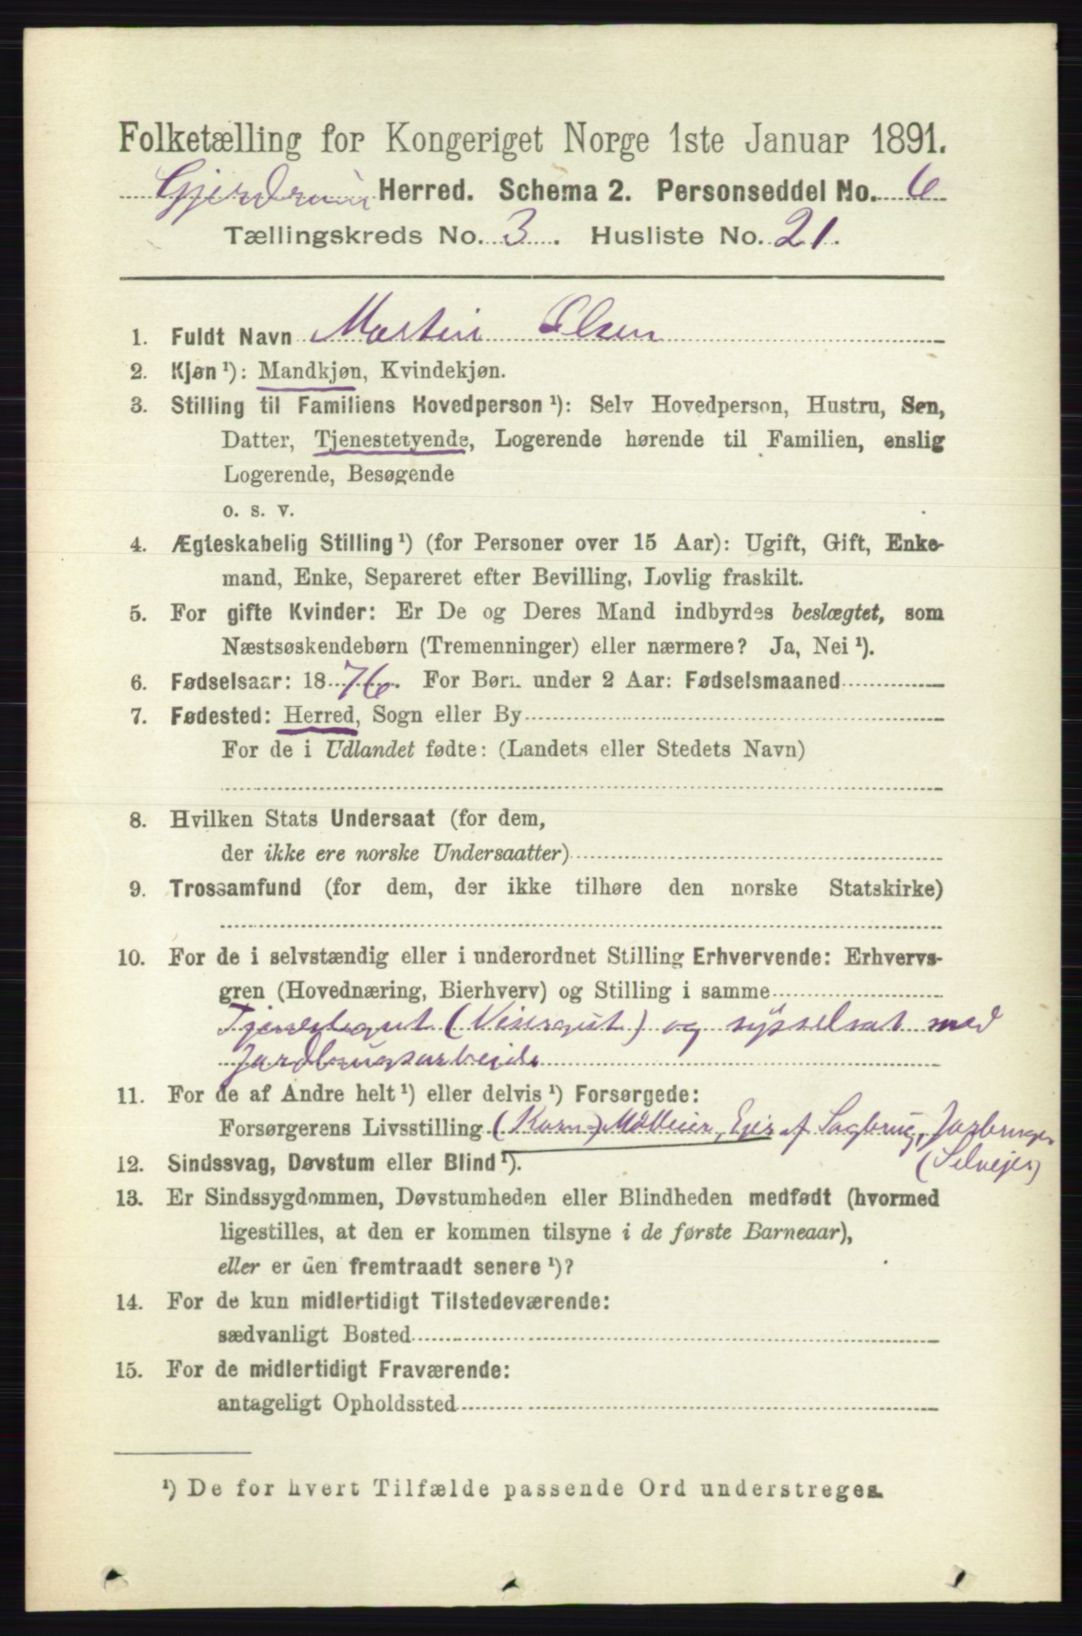 Folketælling for Kongeriget Norge 1ste Januar 1891.
Gjerdrum Herred. Schema 2. Personseddel No. 6
Tællingskreds No. 3. Husliste No. 21.
1. Fuldt Navn Martin Olsen
2. Kjøn ¹): Mandkjøn, Kvindekjøn.
3. Stilling til Familiens Hovedperson ¹): Selv Hovedperson, Hustru, Søn,
Datter, Tjenestetyende, Logerende hørende til Familien, enslig
Logerende, Besøgende
o. s. v.
4. Ægteskabelig Stilling ¹) (for Personer over 15 Aar): Ugift, Gift, Enke-
mand, Enke, Separeret efter Bevilling, Lovlig fraskilt.
5. For gifte Kvinder: Er De og Deres Mand indbyrdes beslægtet, som
Næstsøskendebørn (Tremenninger) eller nærmere? Ja, Nei ¹).
6. Fødselsaar: 1876. For Børn under 2 Aar: Fødselsmaaned
7. Fødested: Herred, Sogn eller By
For de i Udlandet fødte: (Landets eller Stedets Navn)
8. Hvilken Stats Undersaat (for dem,
der ikke ere norske Undersaatter)
9. Trossamfund (for dem, der ikke tilhøre den norske Statskirke)
10. For de i selvstændig eller i underordnet Stilling Erhvervende: Erhvervs-
gren (Hovednæring, Bierhverv) og Stilling i samme
Tjenestegut (Visergut) og sysselsat med
Jordbrugsarbeide
11. For de af Andre helt ¹) eller delvis ¹) Forsørgede:
Forsørgerens Livsstilling (Korn-) Møller, Eier af Sagbrug, Jorbruger
(Selveier)
12. Sindssvag, Døvstum eller Blind ¹).
13. Er Sindssygdommen, Døvstumheden eller Blindheden medfødt (hvormed
ligestilles, at den er kommen tilsyne i de første Barneaar),
eller er den fremtraadt senere ¹)?
14. For de kun midlertidigt Tilstedeværende:
sædvanligt Bosted
15. For de midlertidigt Fraværende:
antageligt Opholdssted
¹) De for hvert Tilfælde passende Ord understreges.